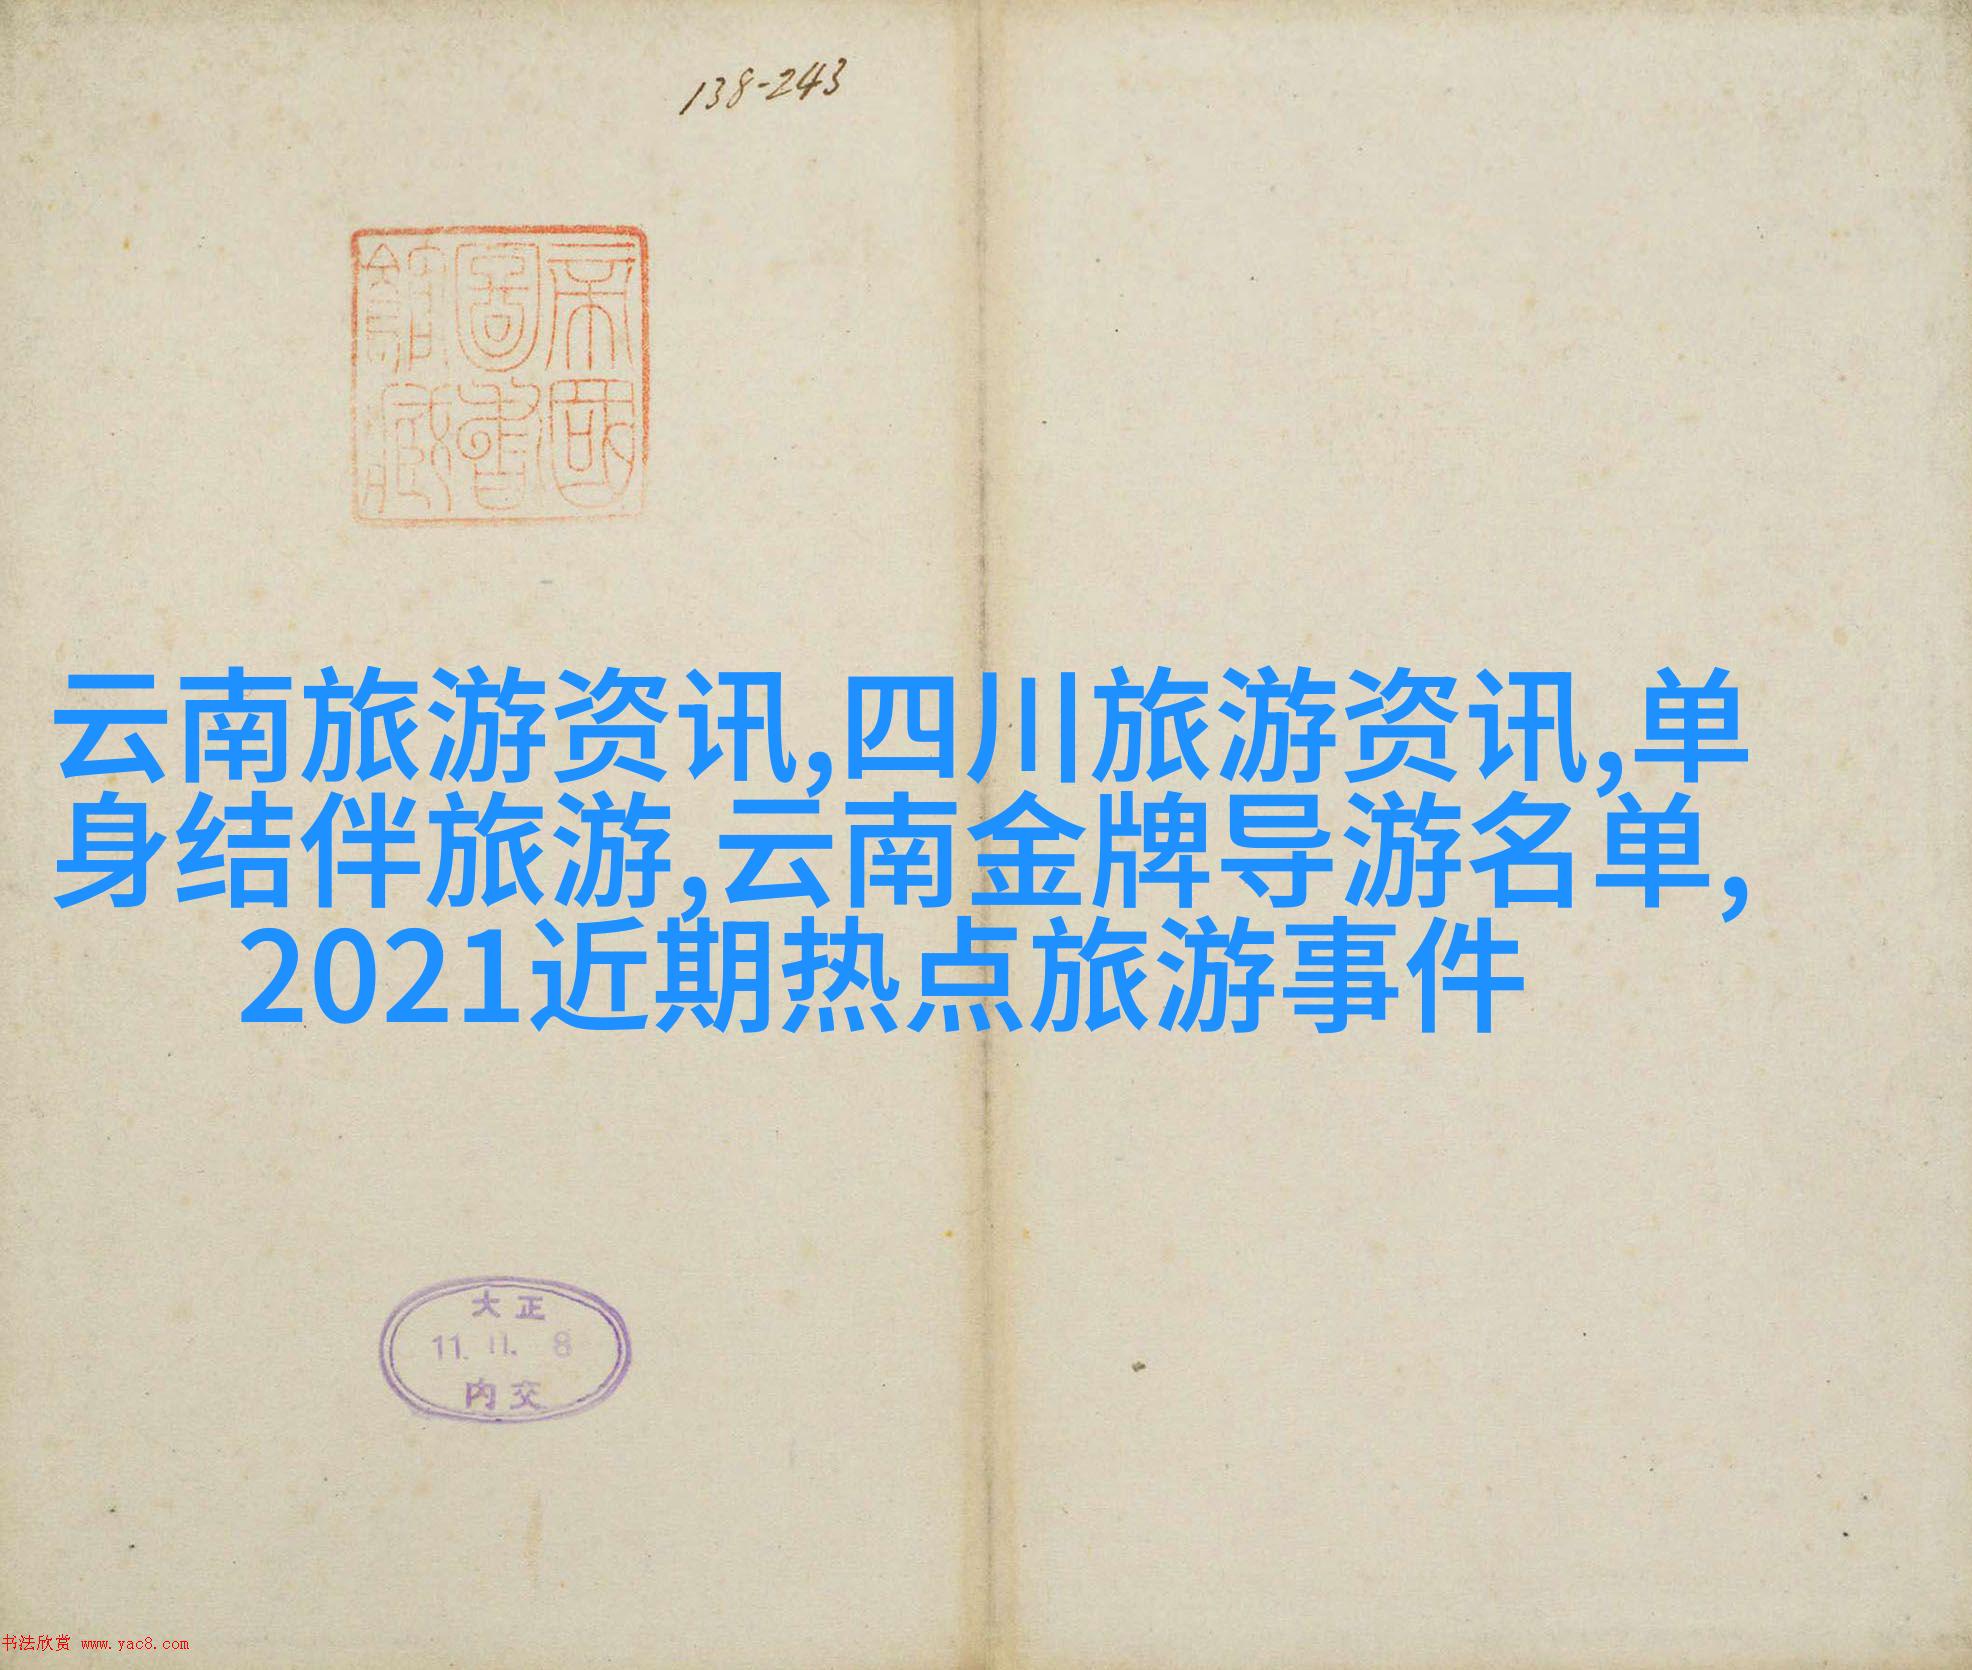 138-243
帝國
圖書
館藏
云南旅游资讯,四川旅游资讯,单
身结伴旅游,云南金牌导游名单,
2021近期热点旅游事件
大正
11.11.8
内交
书法欣赏 www.yac8.com